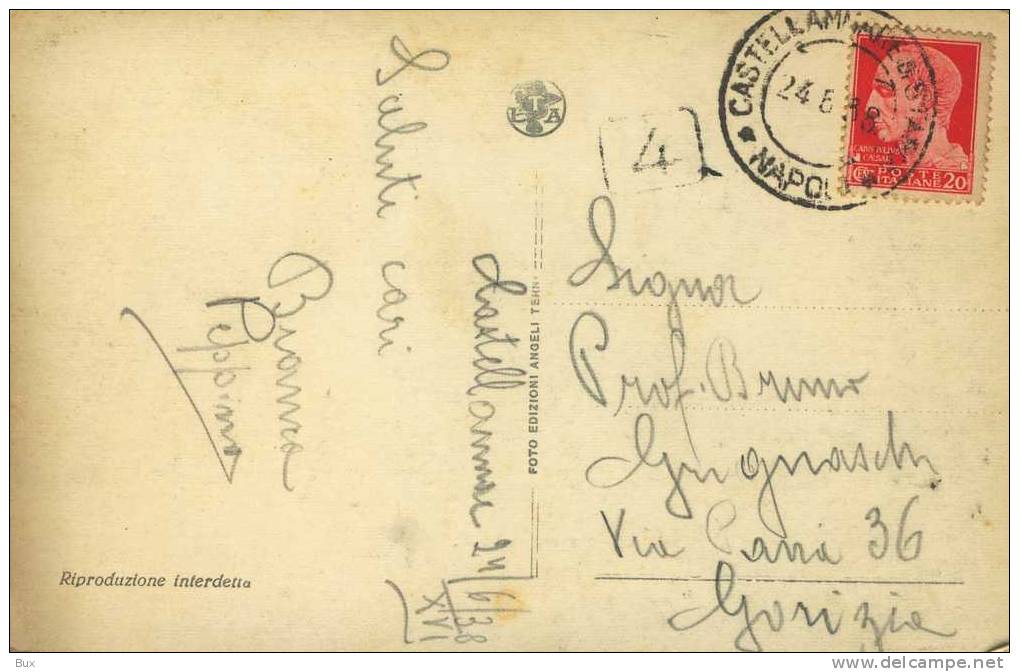 Saluti cari
Bianca
Peppino
Castellammare 24/6/38
XVI
Riproduzione interdetta
FOTO EDIZIONI ANGELI TERNI
LTA
4
CASTELLAMMARE DI STABIA
24 6 38
* NAPOLI *
CAIVS IVLIVS
CAESAR
POSTE
CENT ITALIANE 20
Signor
Prof. Bruno
Grignaschi
Via 36
Gorizia
Bux
http://www.delcampe.net